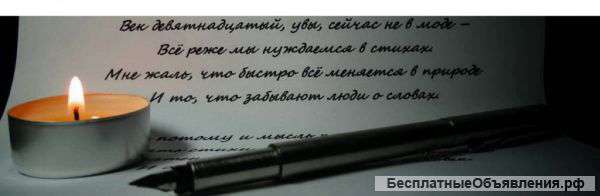 Век девятнадцатый, увы, сейчас не в моде –
Всё реже мы нуждаемся в стихах.
Мне жаль, что быстро всё меняется в природе
И то, что забывают люди о словах.
потому и мысль
БесплатныеОбъявления.рф